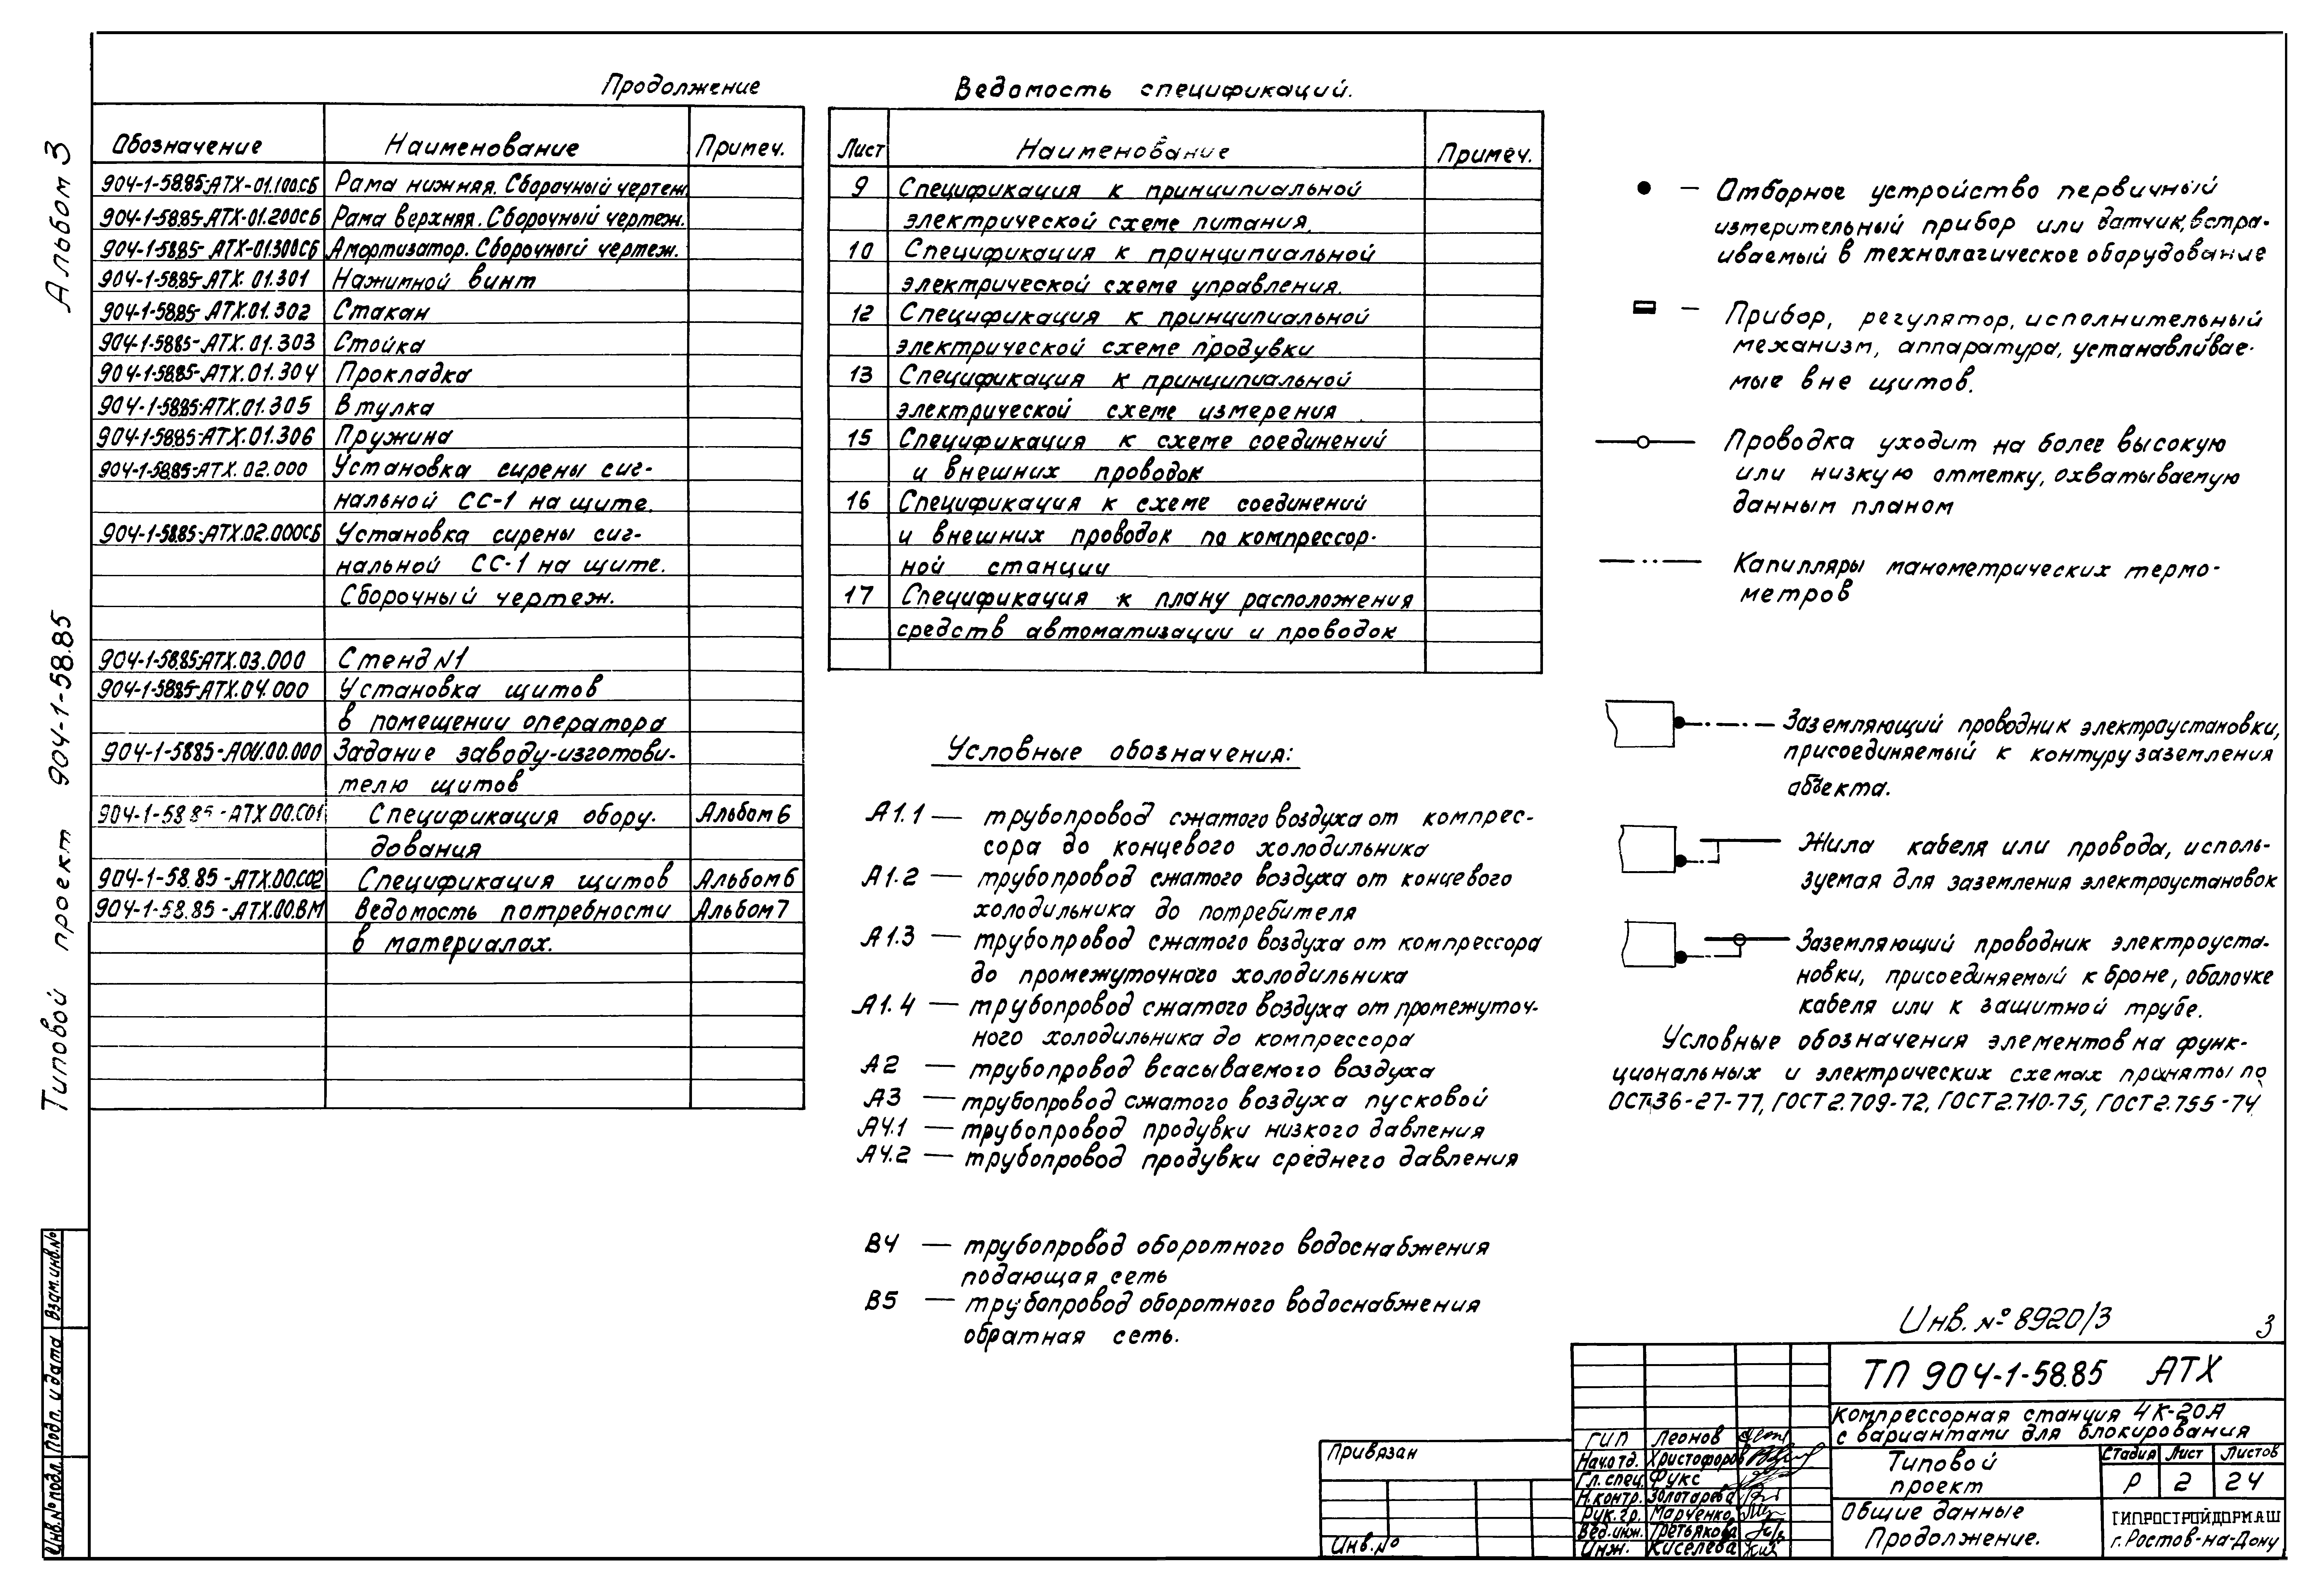 Альбом 3
Типовой проект 904-1-58.85
Продолжение
Обозначение Наименование Примеч.
904-1-58.85-АТХ-01.100.СБ Рама нижняя. Сборочный чертеж
904-1-58.85-АТХ-01.200СБ Рама верхняя. Сборочный чертеж.
904-1-58.85-АТХ-01.300СБ Амортизатор. Сборочный чертеж.
904-1-58.85-АТХ.01.301 Нажимной винт
904-1-58.85-АТХ.01.302 Стакан
904-1-58.85-АТХ.01.303 Стойка
904-1-58.85-АТХ.01.304 Прокладка
904-1-58.85-АТХ.01.305 Втулка
904-1-58.85-АТХ.01.306 Пружина
904-1-58.85-АТХ.02.000 Установка сирены сиг-
нальной СС-1 на щите.
904-1-58.85-АТХ.02.000СБ Установка сирены сиг-
нальной СС-1 на щите.
Сборочный чертеж.
904-1-58.85-АТХ.03.000 Стенд N1
904-1-58.85-АТХ.04.000 Установка щитов
в помещении оператора
904-1-58.85-АОИ.00.000 Задание заводу-изготови-
телю щитов
904-1-58.85-АТХ.00.СО1 Спецификация обору- Альбом 6
дования
904-1-58.85-АТХ.00.СО2 Спецификация щитов Альбом 6
904-1-58.85-АТХ.00.ВМ Ведомость потребности Альбом 7
в материалах.
Ведомость спецификаций.
Лист Наименование Примеч.
9 Спецификация к принципиальной
электрической схеме питания.
10 Спецификация к принципиальной
электрической схеме управления.
12 Спецификация к принципиальной
электрической схеме продувки
13 Спецификация к принципиальной
электрической схеме измерения
15 Спецификация к схеме соединений
и внешних проводок
16 Спецификация к схеме соединений
и внешних проводок по компрессор-
ной станции
17 Спецификация к плану расположения
средств автоматизации и проводок
Условные обозначения:
А1.1 — трубопровод сжатого воздуха от компрес-
сора до концевого холодильника
А1.2 — трубопровод сжатого воздуха от концевого
холодильника до потребителя
А1.3 — трубопровод сжатого воздуха от компрессора
до промежуточного холодильника
А1.4 — трубопровод сжатого воздуха от промежуточ-
ного холодильника до компрессора
А2 — трубопровод всасываемого воздуха
А3 — трубопровод сжатого воздуха пусковой
А4.1 — трубопровод продувки низкого давления
А4.2 — трубопровод продувки среднего давления
В4 — трубопровод оборотного водоснабжения
подающая сеть
В5 — трубопровод оборотного водоснабжения
обратная сеть.
— Отборное устройство первичный
измерительный прибор или датчик, встра-
иваемый в технологическое оборудование
— Прибор, регулятор, исполнительный
механизм, аппаратура, устанавливае-
мые вне щитов.
Проводка уходит на более высокую
или низкую отметку, охватываемую
данным планом
Капилляры манометрических термо-
метров
Заземляющий проводник электроустановки,
присоединяемый к контуру заземления
объекта.
Жила кабеля или провода, исполь-
зуемая для заземления электроустановок
Заземляющий проводник электроуста-
новки, присоединяемый к броне, оболочке
кабеля или к защитной трубе.
Условные обозначения элементов на функ-
циональных и электрических схемах приняты по
ОСТ36-27-77, ГОСТ2.709-72, ГОСТ2.710-75, ГОСТ2.755-74
Инв. № 8920/3 3
ТП 904-1-58.85 АТХ
Компрессорная станция 4К-20А
с вариантами для блокирования
Типовой
проект
Стадия Лист Листов
Р 2 24
Общие данные
Продолжение.
ГИПРОСТРОЙДОРМАШ
г. Ростов-на-Дону
ГИП Леонов
Нач.отд. Христофоров
Гл. спец. Фукс
Н.контр. Золотарева
Рук. гр. Марченко
Вед.инж. Третьякова
Инж. Киселева
Привязан
Инв.№
Взам.инв.№
Подп. и дата
Инв.№ подл.